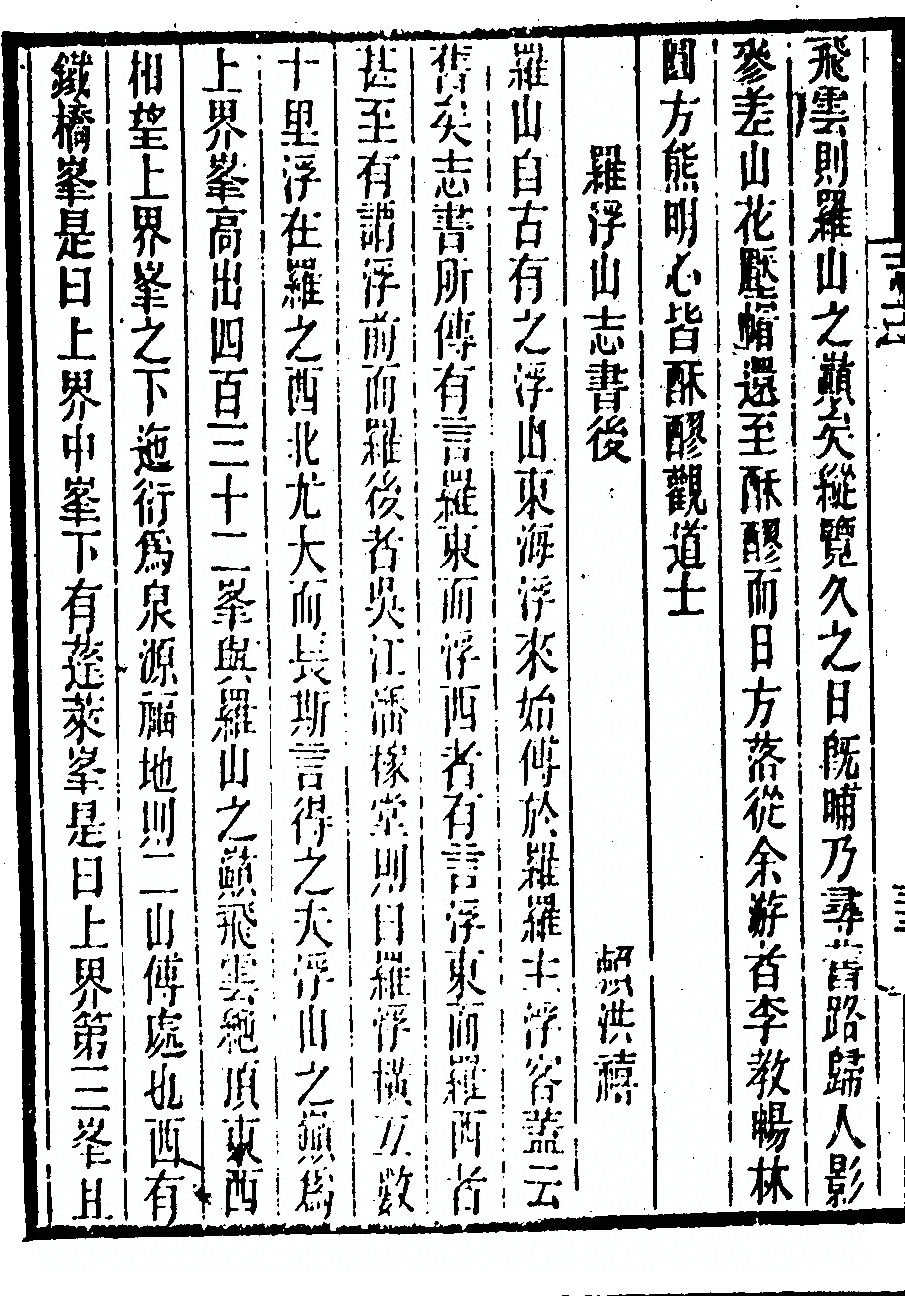 飛雲則羅山之巔矣縱覽久之日旣晡乃尋舊路歸人影
參差山花壓帽還至酥醪而日方落從余游者李教暢林
圓方熊明心皆酥醪觀道士
羅浮山志書後
賴洪禧
羅山自古有之浮山東海浮來始傅於羅羅主浮客蓋云
舊矣志書所傳有言羅東而浮西者有言浮東而羅西者
甚至有謂浮前而羅後者吳江潘稼堂則曰羅浮橫亙數
十里浮在羅之西北尤大而長斯言得之夫浮山之巔爲
上界峯高出四百三十二峯與羅山之巔飛雲絶頂東西
相望上界峯之下迤衍爲泉源福地則二山傅處也西有
鐵橋峯是曰上界中峯下有蓬萊峯是曰上界第三峯且